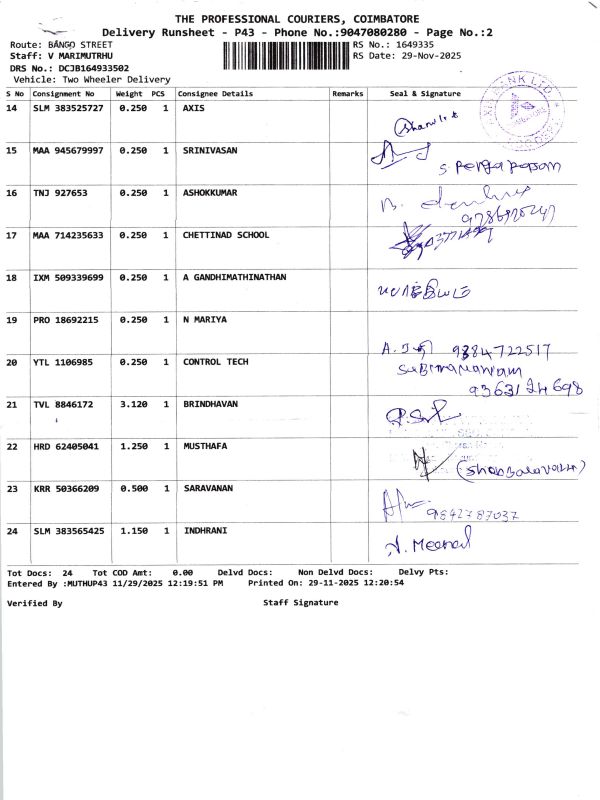 THE PROFESSIONAL COURIERS, COIMBATORE
Delivery Runsheet - P43 - Phone No.:9047080280 - Page No.:2
Route: BANGO STREET RS No.: 1649335
Staff: V MARIMUTRHU RS Date: 29-Nov-2025
DRS No.: DCJB164933502
Vehicle: Two Wheeler Delivery
S No Consignment No Weight PCS Consignee Details Remarks Seal & Signature
14 SLM 383525727 0.250 1 AXIS
15 MAA 945679997 0.250 1 SRINIVASAN
16 TNJ 927653 0.250 1 ASHOKKUMAR
17 MAA 714235633 0.250 1 CHETTINAD SCHOOL
18 IXM 509339699 0.250 1 A GANDHIMATHINATHAN
19 PRO 18692215 0.250 1 N MARIYA
9384722517
20 YTL 1106985 0.250 1 CONTROL TECH
93631 24698
21 TVL 8846172 3.120 1 BRINDHAVAN
22 HRD 62405041 1.250 1 MUSTHAFA
23 KRR 50366209 0.500 1 SARAVANAN
9842787037
24 SLM 383565425 1.150 1 INDHRANI
Tot Docs: 24 Tot COD Amt: 0.00 Delvd Docs: Non Delvd Docs: Delvy Pts:
Entered By :MUTHUP43 11/29/2025 12:19:51 PM Printed On: 29-11-2025 12:20:54
Verified By Staff Signature